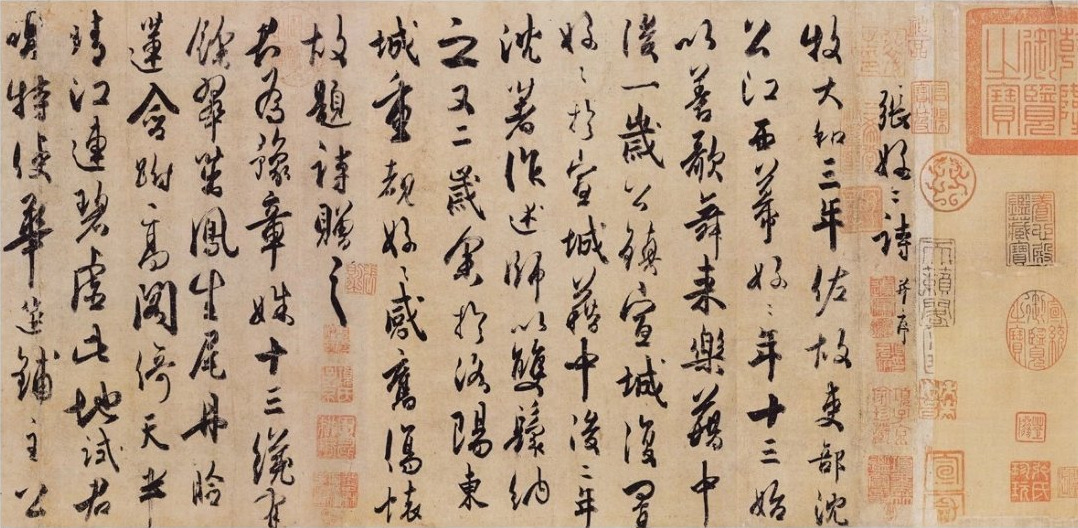 乾隆御覽之寶
養心殿鑑藏寶
宣統御覽之寶
天籟閣
張好〻詩 并序
牧大和三年佐故吏部沈
公江西幕好〻年十三始
以善歌舞来樂籍中
後一歲公鎮宣城復置
好〻於宣城籍中後二年
沈著作述師以雙鬟納
之又二歲余於洛陽東
城重覩好〻感舊傷懷
故題詩贈之
君為豫章姝十三纔有
餘翠茁鳳生尾丹瞼
蓮含跗高閣倚天半
晴江連碧虛此地試君
唱特使華筵鋪主公